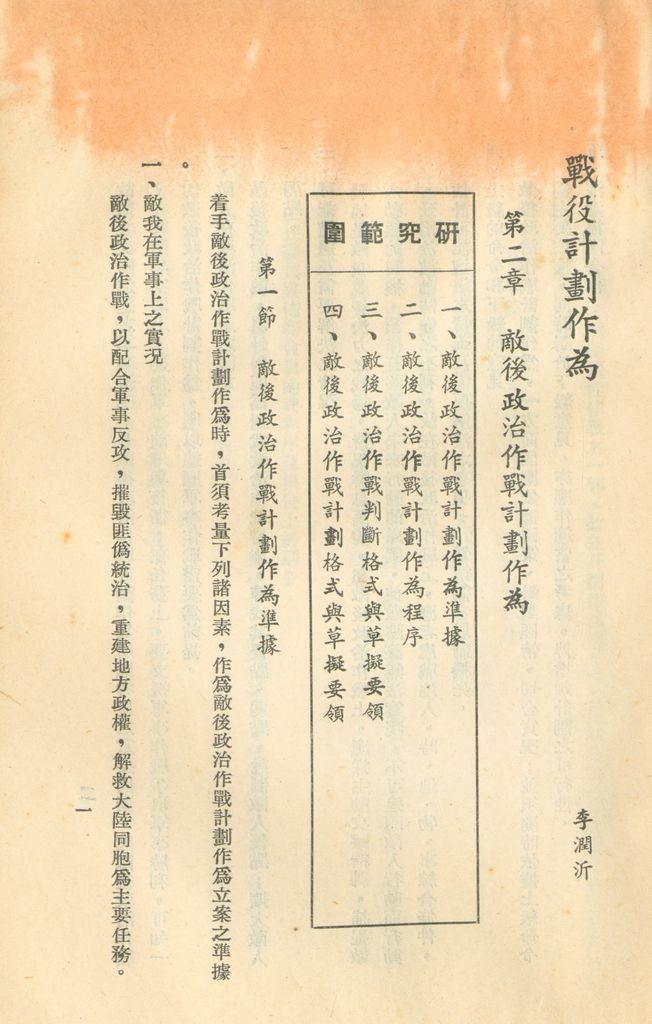 戰役計劃作為
李潤沂
第二章　敵後政治作戰計劃作為
研究範圍
一、敵後政治作戰計劃作為準據
二、敵後政治作戰計劃作為程序
三、敵後政治作戰判斷格式與草擬要領
四、敵後政治作戰計劃格式與草擬要領
第一節　敵後政治作戰計劃作為準據
着手敵後政治作戰計劃作爲時，首須考量下列諸因素，作爲敵後政治作戰計劃作爲立案之準據
。
一、敵我在軍事上之實況
敵後政治作戰，以配合軍事反攻，摧毀匪僞統治，重建地方政權，解救大陸同胞爲主要任務。